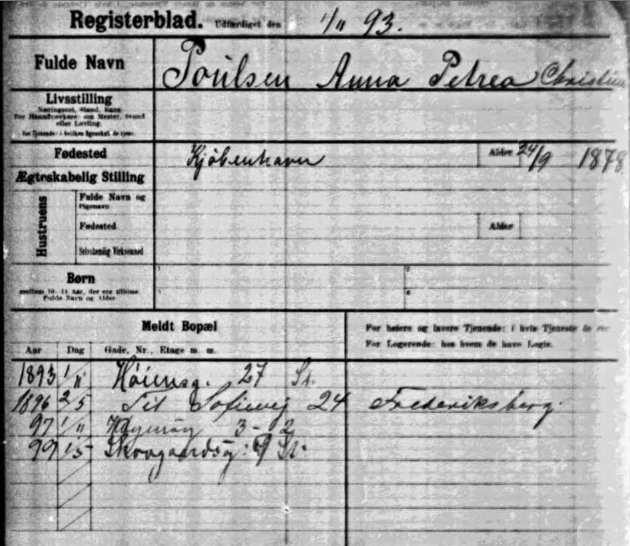 Registerblad. Udfærdiget den 1/11 93.
Fulde Navn Poulsen Anna Petrea Christine
Livsstilling
Næringsvei, Stand, Rang.
For Haandværkere: om Mester, Svend
eller Lærling.
Fødested Kjøbenhavn Alder 24/9 1878
Ægteskabelig Stilling
Hustruens
Fulde Navn og
Pigenavn
Fødested Alder
Selvstændig Virksomhed
Børn
mellem 10-14 Aar, der ere tillige
Fulde Navn og Alder
1 2
Meldt Bopæl
For høiere og lavere Tjenende: i hvis Tjeneste de ere
For Logerende: hos hvem de have Logis.
Aar Dag Gade, Nr., Etage m. m.
1893 1/11 Høiensg. 27 St.
1896 2/5 Til Sofievej 24 Frederiksberg.
97 1/11 3 - 2
99 1/5 Skovgaardsg: 9 St: